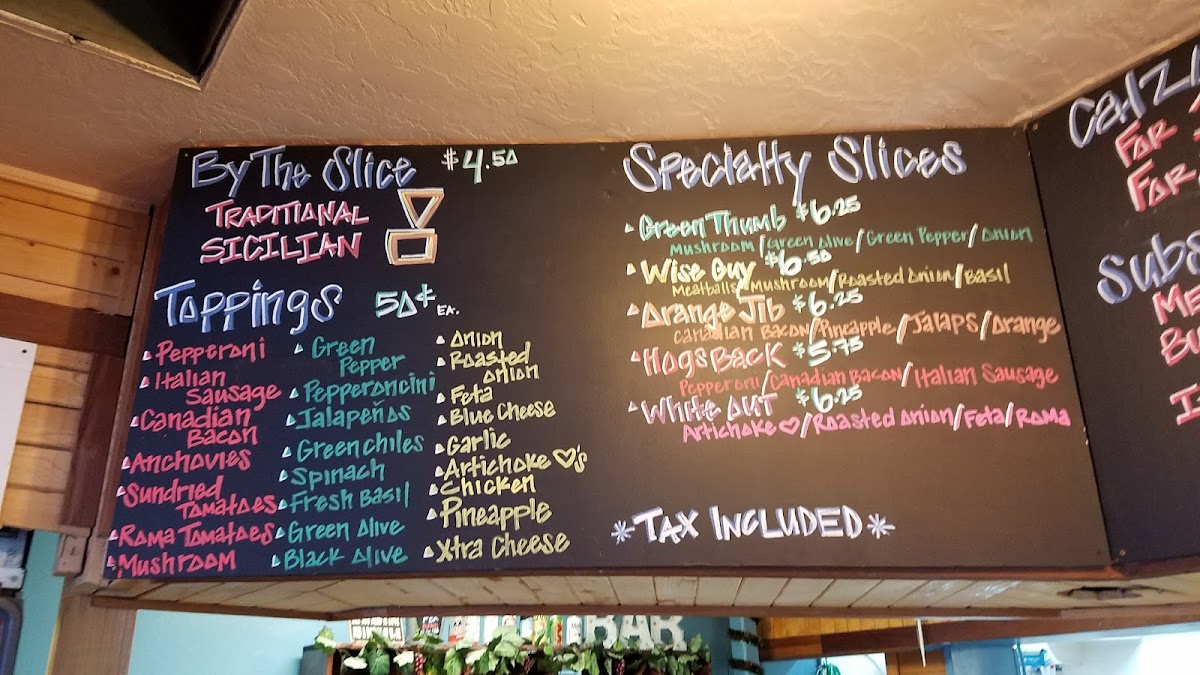 By The Slice $4.50
Traditional
Sicilian
Toppings 50¢ ea.
Pepperoni
Italian
Sausage
Canadian
Bacon
Anchovies
Sundried
Tomatoes
Roma Tomatoes
Mushroom
Green
Pepper
Pepperoncini
Jalapeños
Green chiles
Spinach
Fresh Basil
Green Olive
Black Olive
Onion
Roasted
Onion
Feta
Blue Cheese
Garlic
Artichoke ♡'s
Chicken
Pineapple
Xtra Cheese
Specialty Slices
Green Thumb $6.25
Mushroom/Green Olive/Green Pepper/Onion
Wise Guy $6.50
Meatballs/Mushroom/Roasted Onion/Basil
Orange Jib $6.25
Canadian Bacon/Pineapple/Jalaps/Orange
Hogs Back $5.75
Pepperoni/Canadian Bacon/Italian Sausage
White Out $6.25
Artichoke ♡/Roasted Onion/Feta/Roma
*Tax Included*
For
For
Subs
BAR